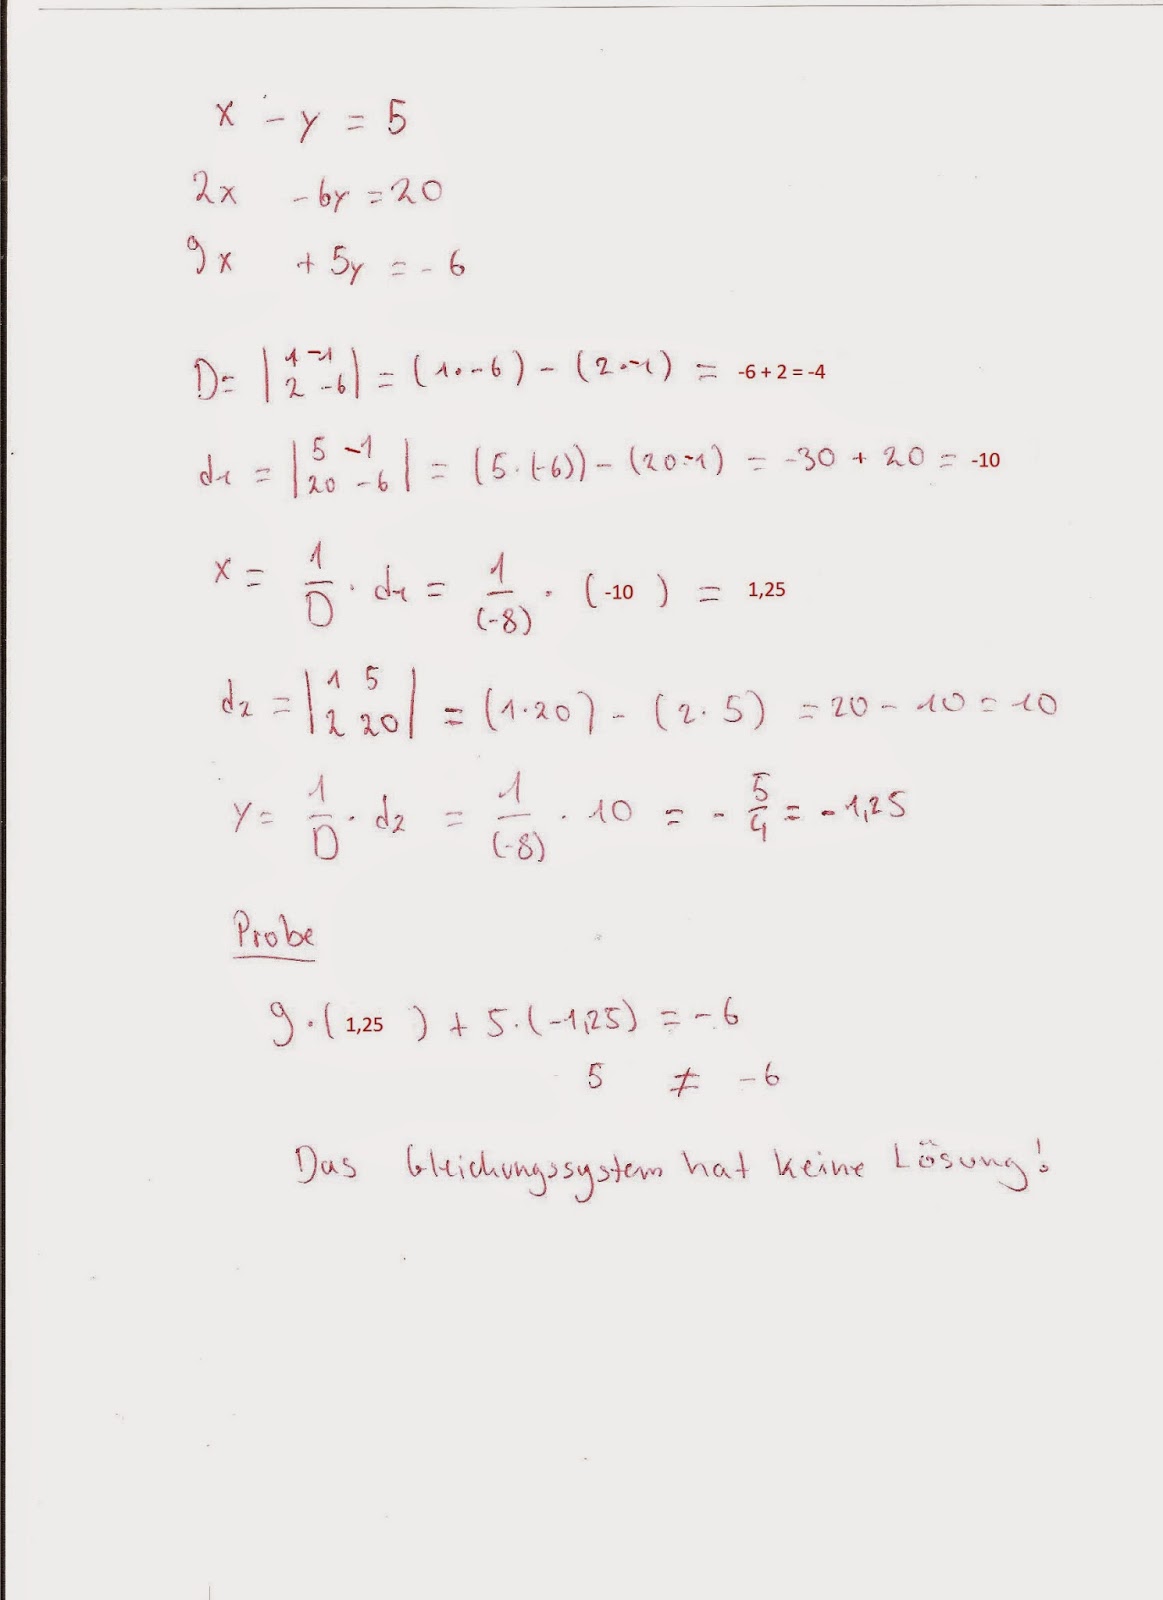 x - y = 5
2x - 6y = 20
9x + 5y = - 6
D = | 1 -1 | = (1·-6) - (2·-1) = -6 + 2 = -4
| 2 -6 |
d1 = | 5 -1 | = (5·(-6)) - (20·-1) = -30 + 20 = -10
| 20 -6 |
x = 1/D · d1 = 1/(-8) · (-10) = 1,25
d2 = | 1 5 | = (1·20) - (2·5) = 20 - 10 = 10
| 2 20 |
y = 1/D · d2 = 1/(-8) · 10 = - 5/4 = -1,25
Probe
9·(1,25) + 5·(-1,25) = -6
5 ≠ -6
Das Gleichungssystem hat keine Lösung!